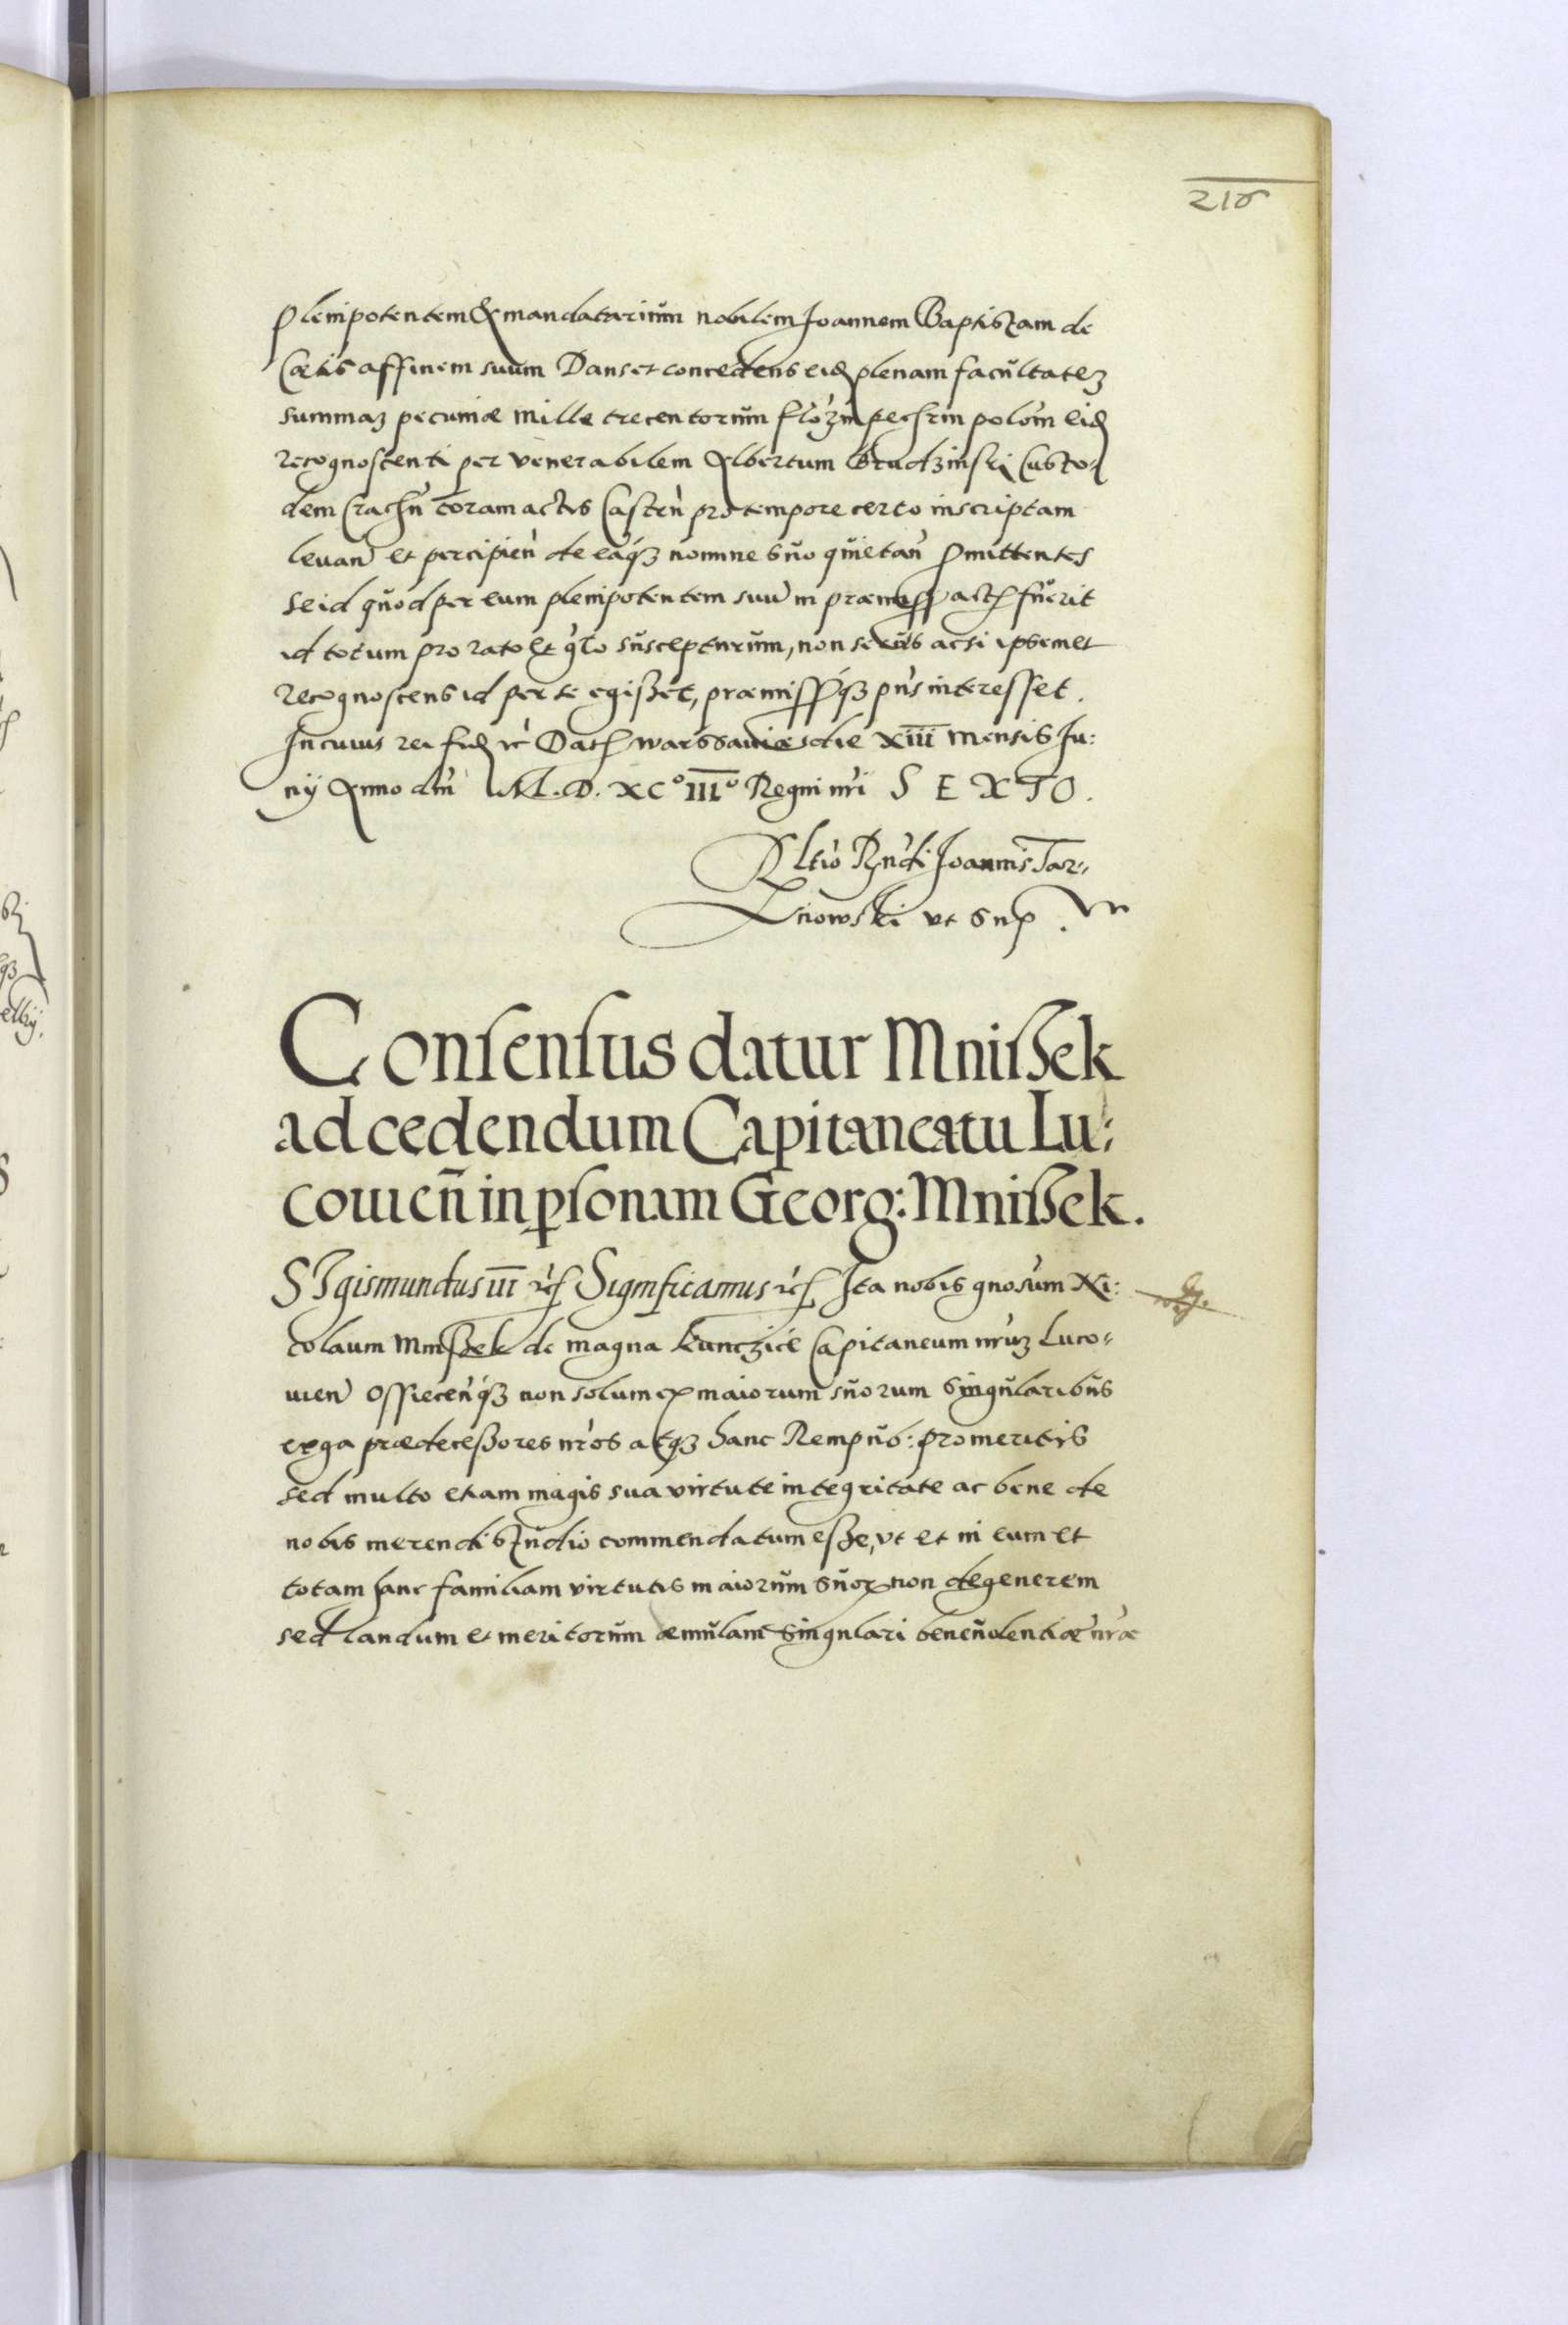 218
Plenipotentem & mandatarium nobilem Joannem Baptistam de
Caetis affinem suum Dans et concedens eid plenam facultatem
summam pecuniae mille trecentorum flor in pecun polon eid
recognoscenti per venerabilem Albertum Brudzinski Custo-
dem Cracn coram actis Castren pro tempore certo inscriptam
levan et percipien de eaq nomine suo quietan promittentes
se id quod per eum plenipotentem suu in praemiss act fuerit
id totum pro rato et grto suscepturum, non secus acsi ipsemet
recognoscens id per se egisset, praemissisq pns interesset.
In cuius rei fid rc Dat warssaviae die XIII mensis Ju:
nij Anno dni M.D.XC° III° Regni nri SEXTO.
Rltio Rndi Joannis Tar:
nowski vt sup.
Consensus datur Mnissek
ad cedendum Capitaneatu Lu:
couien in psonam Georg: Mnissek.
SIgismundus III rc Significamus rc Ita nobis gnosum Ni:
colaum Mnissek de magna kunczice Capitaneum nrum Luco-
uien Ossiecenq non solum ex maiorum suorum singularibus
erga praedecessores nros atq hanc Rempub: promeritis
sed multo etiam magis sua virtute integritate ac bene de
nobis merendi studio commendatum esse, vt et in eum et
totam hanc familiam virtutis maiorum suor non degenerem
sed laudum et meritorum aemulam singulari beneuolentiae nrae